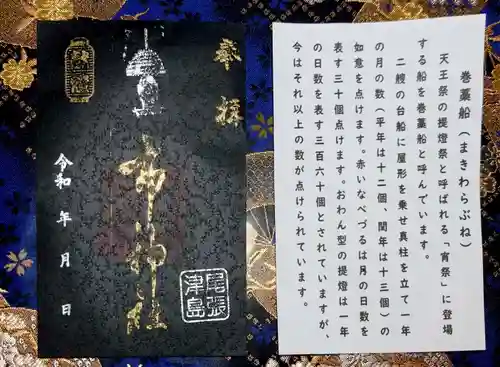 奉拝
令和 年 月 日
尾張
津島
巻藁船（まきわらぶね）
天王祭の提燈祭と呼ばれる「宵祭」に登場
する船を巻藁船と呼んでいます。
二艘の台船に屋形を乗せ真柱を立て一年
の月の数（平年は十二個、閏年は十三個）の
如意を点けます。赤いなべづるは月の日数を
表す三十個点けます。おわん型の提燈は一年
の日数を表す三百六十個とされていますが、
今はそれ以上の数が点けられています。